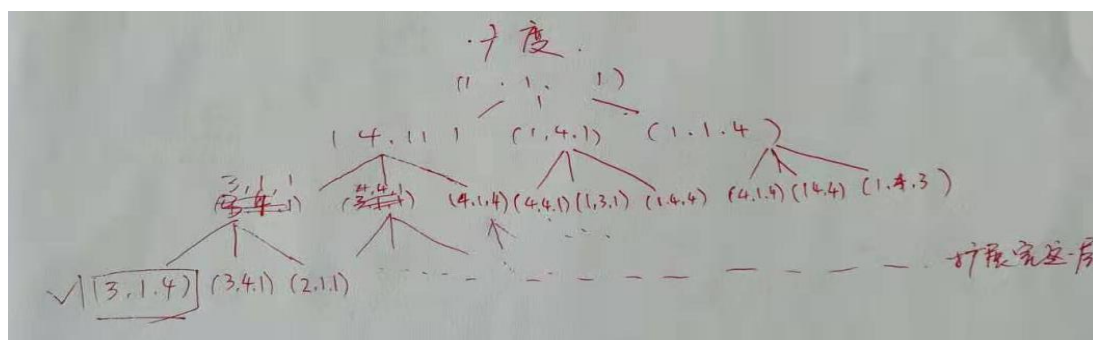 广度.
(1.1.1)
(4.1 1) (1.4.1) (1.1.4)
3,1,1 4,4,1 (4.1.4) (4.4.1) (1,3.1) (1.4.4) (4.1.4) (1 4.4) (1.1.3)
√ (3.1.4) (3.4.1) (2.1.1) 扩展完这一层